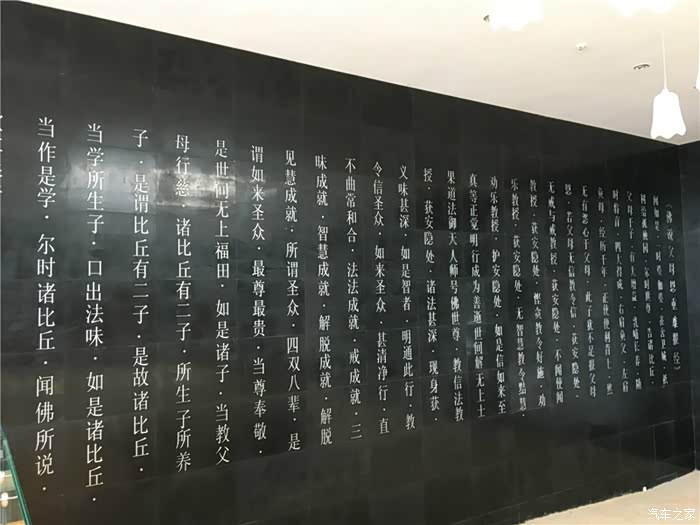 《佛说父母恩重难报经》
父母于子·有大增益·乳哺长养·随
时将育·四大得成·右肩负父·左肩
负母·经历千年·正使便利背上·然
无有怨心于父母·此子犹不足报父母
恩·若父母无信教令信·获安隐处·
无戒与戒教授·获安隐处·不闻使闻
教授·获安隐处·悭贪教令好施·劝
乐教授·获安隐处·无智慧教令黠慧·
劝乐教授·护安隐处·如是信如来至
真等正觉明行成为善逝世间解无上士
果道法御天人师号佛世尊·教信法教
授·获安隐处·诸法甚深·现身获·
义味甚深·如是智者·明通此行·教
令信圣众·如来圣众·甚清净行·直
不曲常和合·法法成就·戒成就·三
昧成就·智慧成就·解脱成就·解脱
见慧成就·所谓圣众·四双八辈·是
谓如来圣众·最尊最贵·当尊奉敬·
是世间无上福田·如是诸子·当教父
母行慈·诸比丘有二子·所生子所养
子·是谓比丘有二子·是故诸比丘·
当学所生子·口出法味·如是诸比丘·
当作是学·尔时诸比丘·闻佛所说·
汽车之家